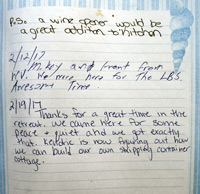 P.S. a wine opener would be
a great addition to kitchen
2/12/17
Mikey and from
W.V. We were here for The LBS.
Awesome Time.
2/19/17
Thanks for a great time in the
retreat. We came here for some
peace & quiet and we got exactly
that. is now figuring out how
we can build our own shipping container
cottage.